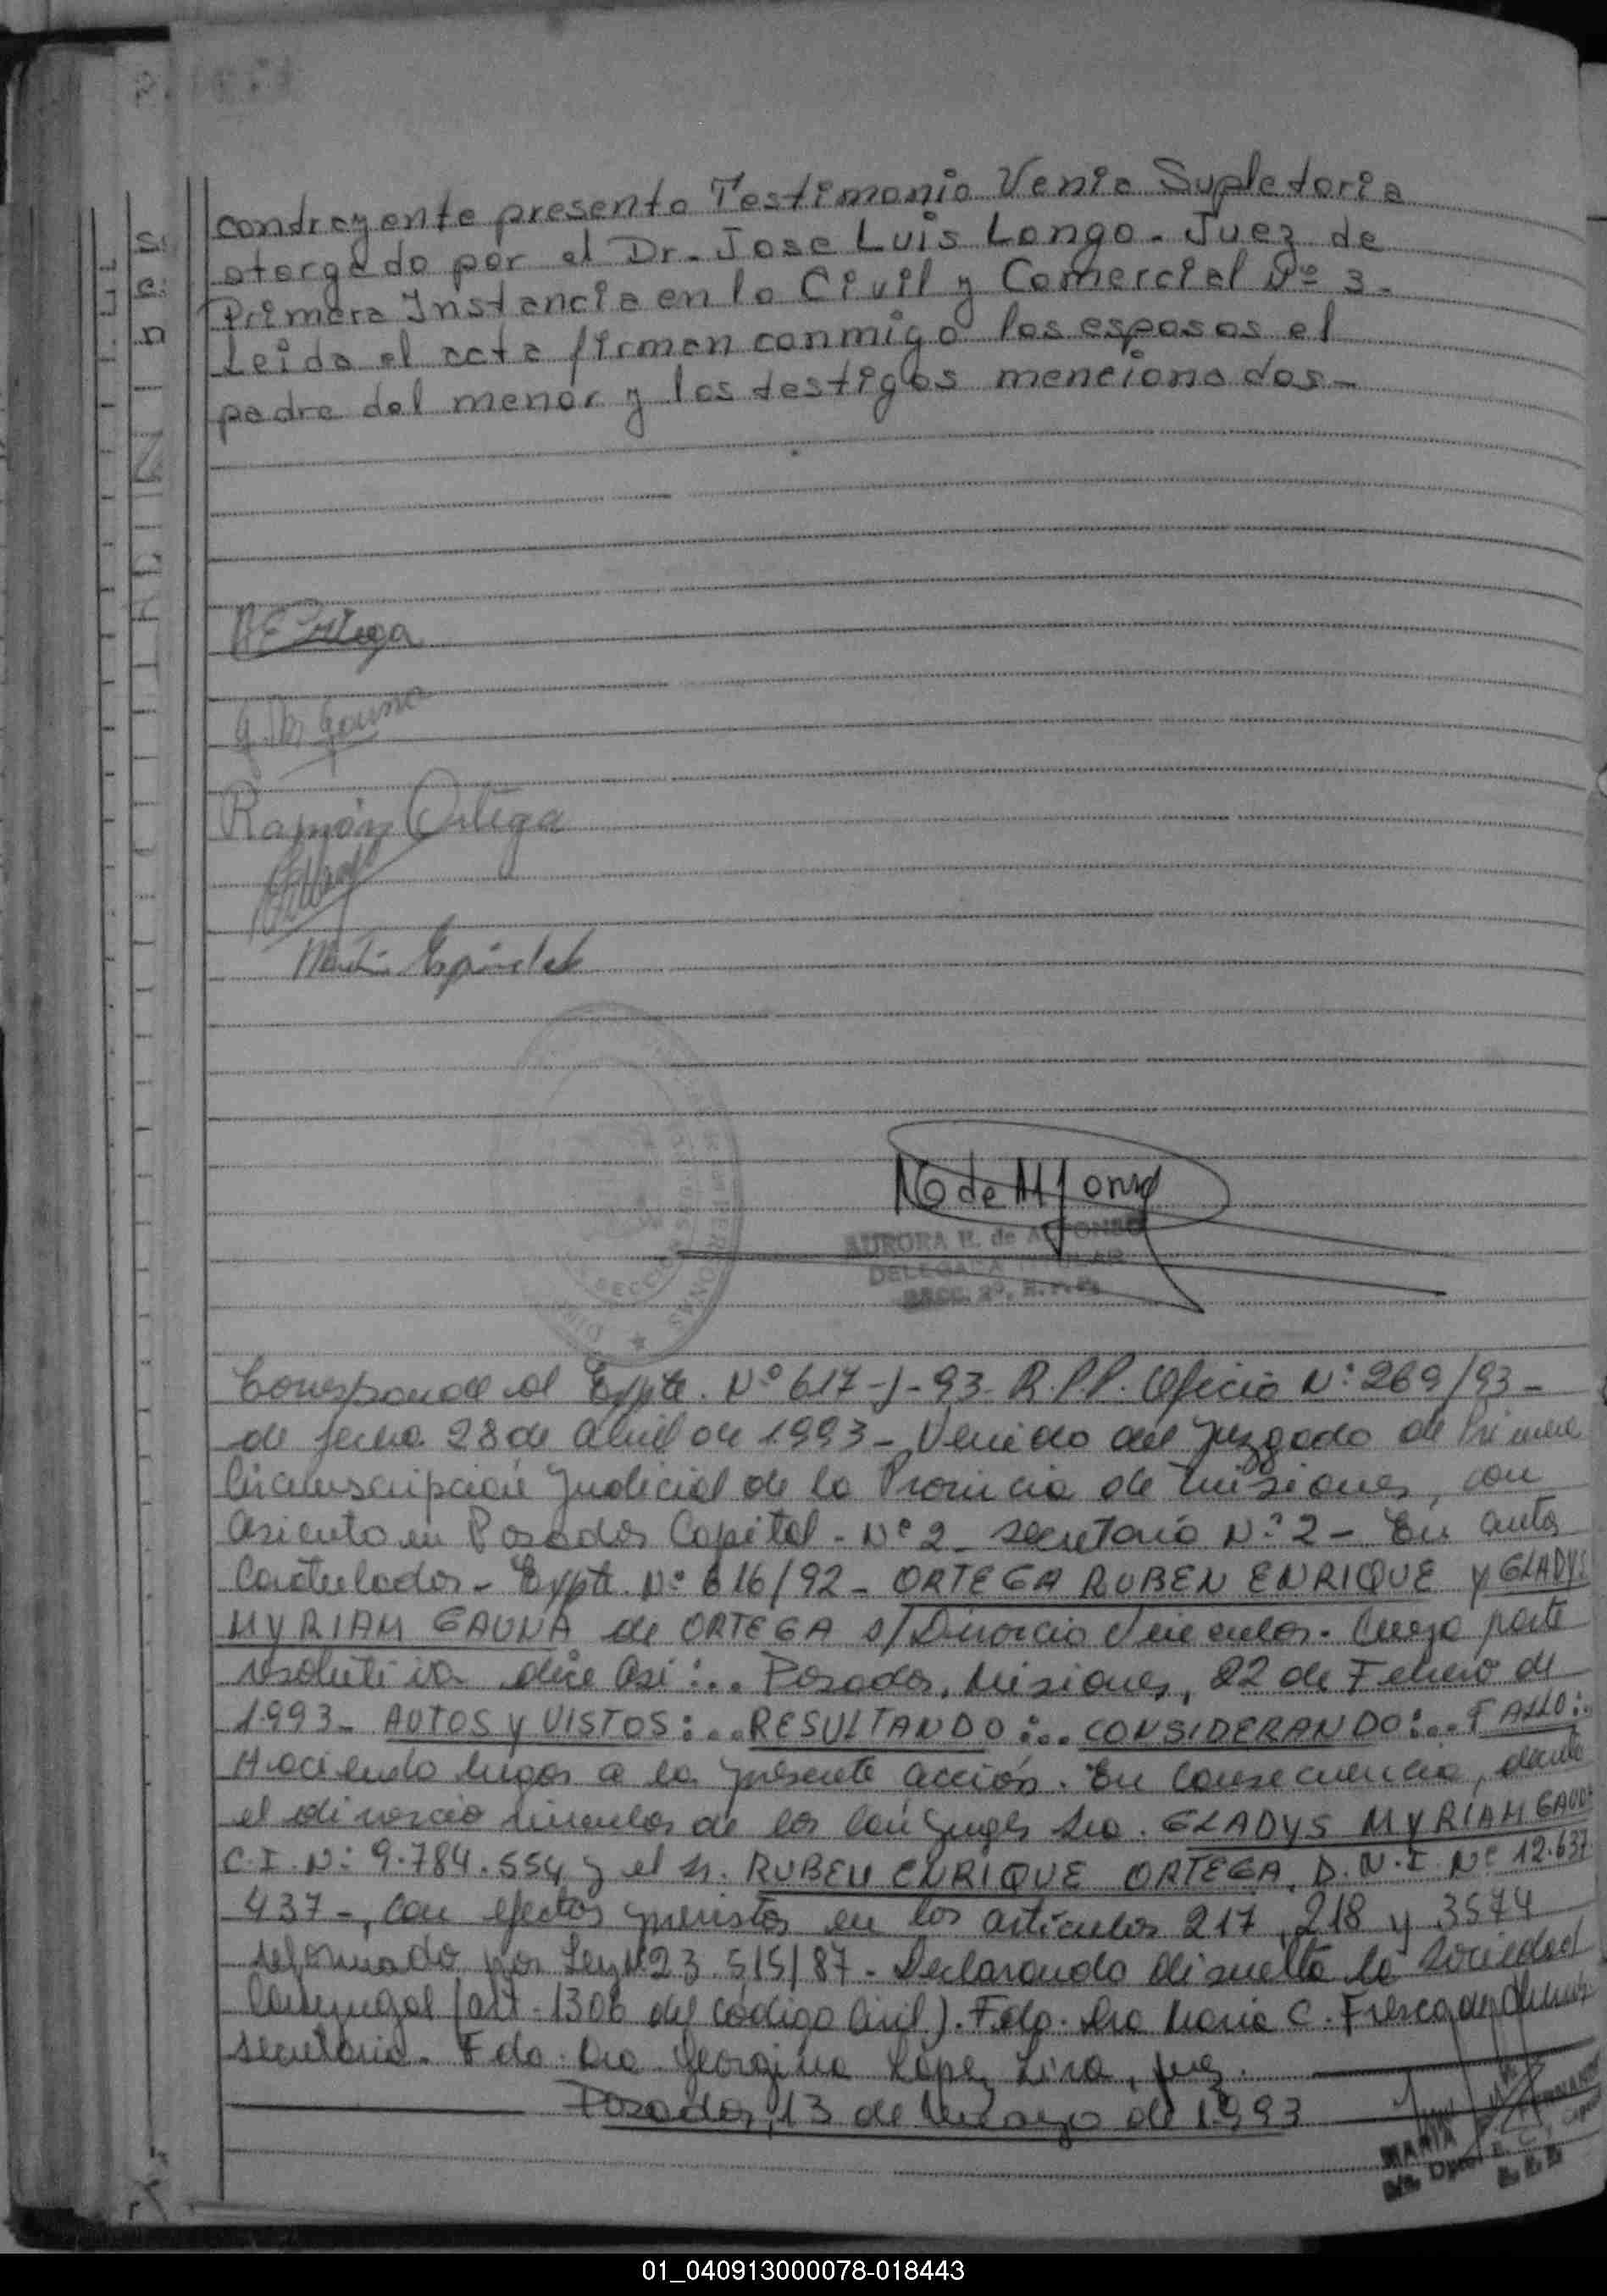 contrayente presento Testimonio Venia Supletoria
otorgado por el Dr. Jose Luis Longo. Juez de
Primera Instancia en lo Civil y Comercial Nº 3.
Leida el acta firman conmigo los esposos el
padre del menor y los testigos mencionados-
R E Ortega
G. M. Gauna
Ramón Ortega
N O de Alfonso
AURORA N. de ALFONSO
DELEGADA TITULAR
SECC. 2ª. R. P. P.
Corresponde al Expte. Nº 617-J-93- R.P.P. Oficio Nº 269/93-
de fecha 28 de Abril de 1993- Venido del Juzgado de Primera
Circunscripcion Judicial de la Provincia de Misiones, con
asiento en Posadas Capital- Nº 2- secretaria Nº 2- En autos
Caratulados- Expte. Nº 616/92- ORTEGA RUBEN ENRIQUE y GLADYS
MYRIAM GAUNA de ORTEGA s/ Divorcio Vincular. Cuya parte
resolutiva dice asi:... Posadas, Misiones, 22 de Febrero de
1993- AUTOS y VISTOS:... RESULTANDO:... CONSIDERANDO:... FALLO:..
Haciendo lugar a la presente acción. En Consecuencia, decreto
el divorcio vincular de los cónyuges Sra. GLADYS MYRIAM GAUNA
C.I. Nº 9.784.554 y el Sr. RUBEN ENRIQUE ORTEGA, D.N.I. Nº 12.637.
437-, con efectos previstos en los artículos 217, 218 y 3574
reformado por Ley Nº 23.515/87- Declarando disuelta la Sociedad
Conyugal (art. 1306 del código Civil). Fdo. Dra Maria C. Fresca de
secretaria. Fdo. Dra. Georgina Lopez Lira, Juez.
Posadas, 13 de Mayo de 1993
MARIA
01_040913000078-018443